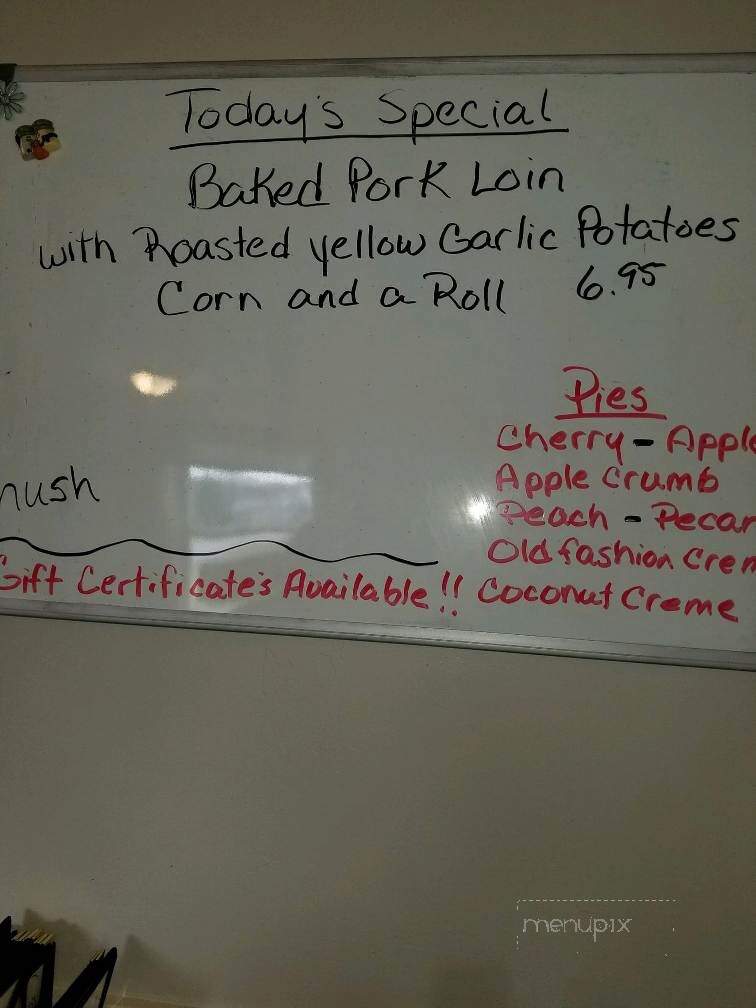 Today's Special
Baked Pork Loin
with Roasted yellow Garlic Potatoes
Corn and a Roll 6.95
Pies
Cherry - Apple
Apple Crumb
Peach - Pecan
Old fashion Crem
Coconut Creme
Gift Certificate's Available!!
menupix